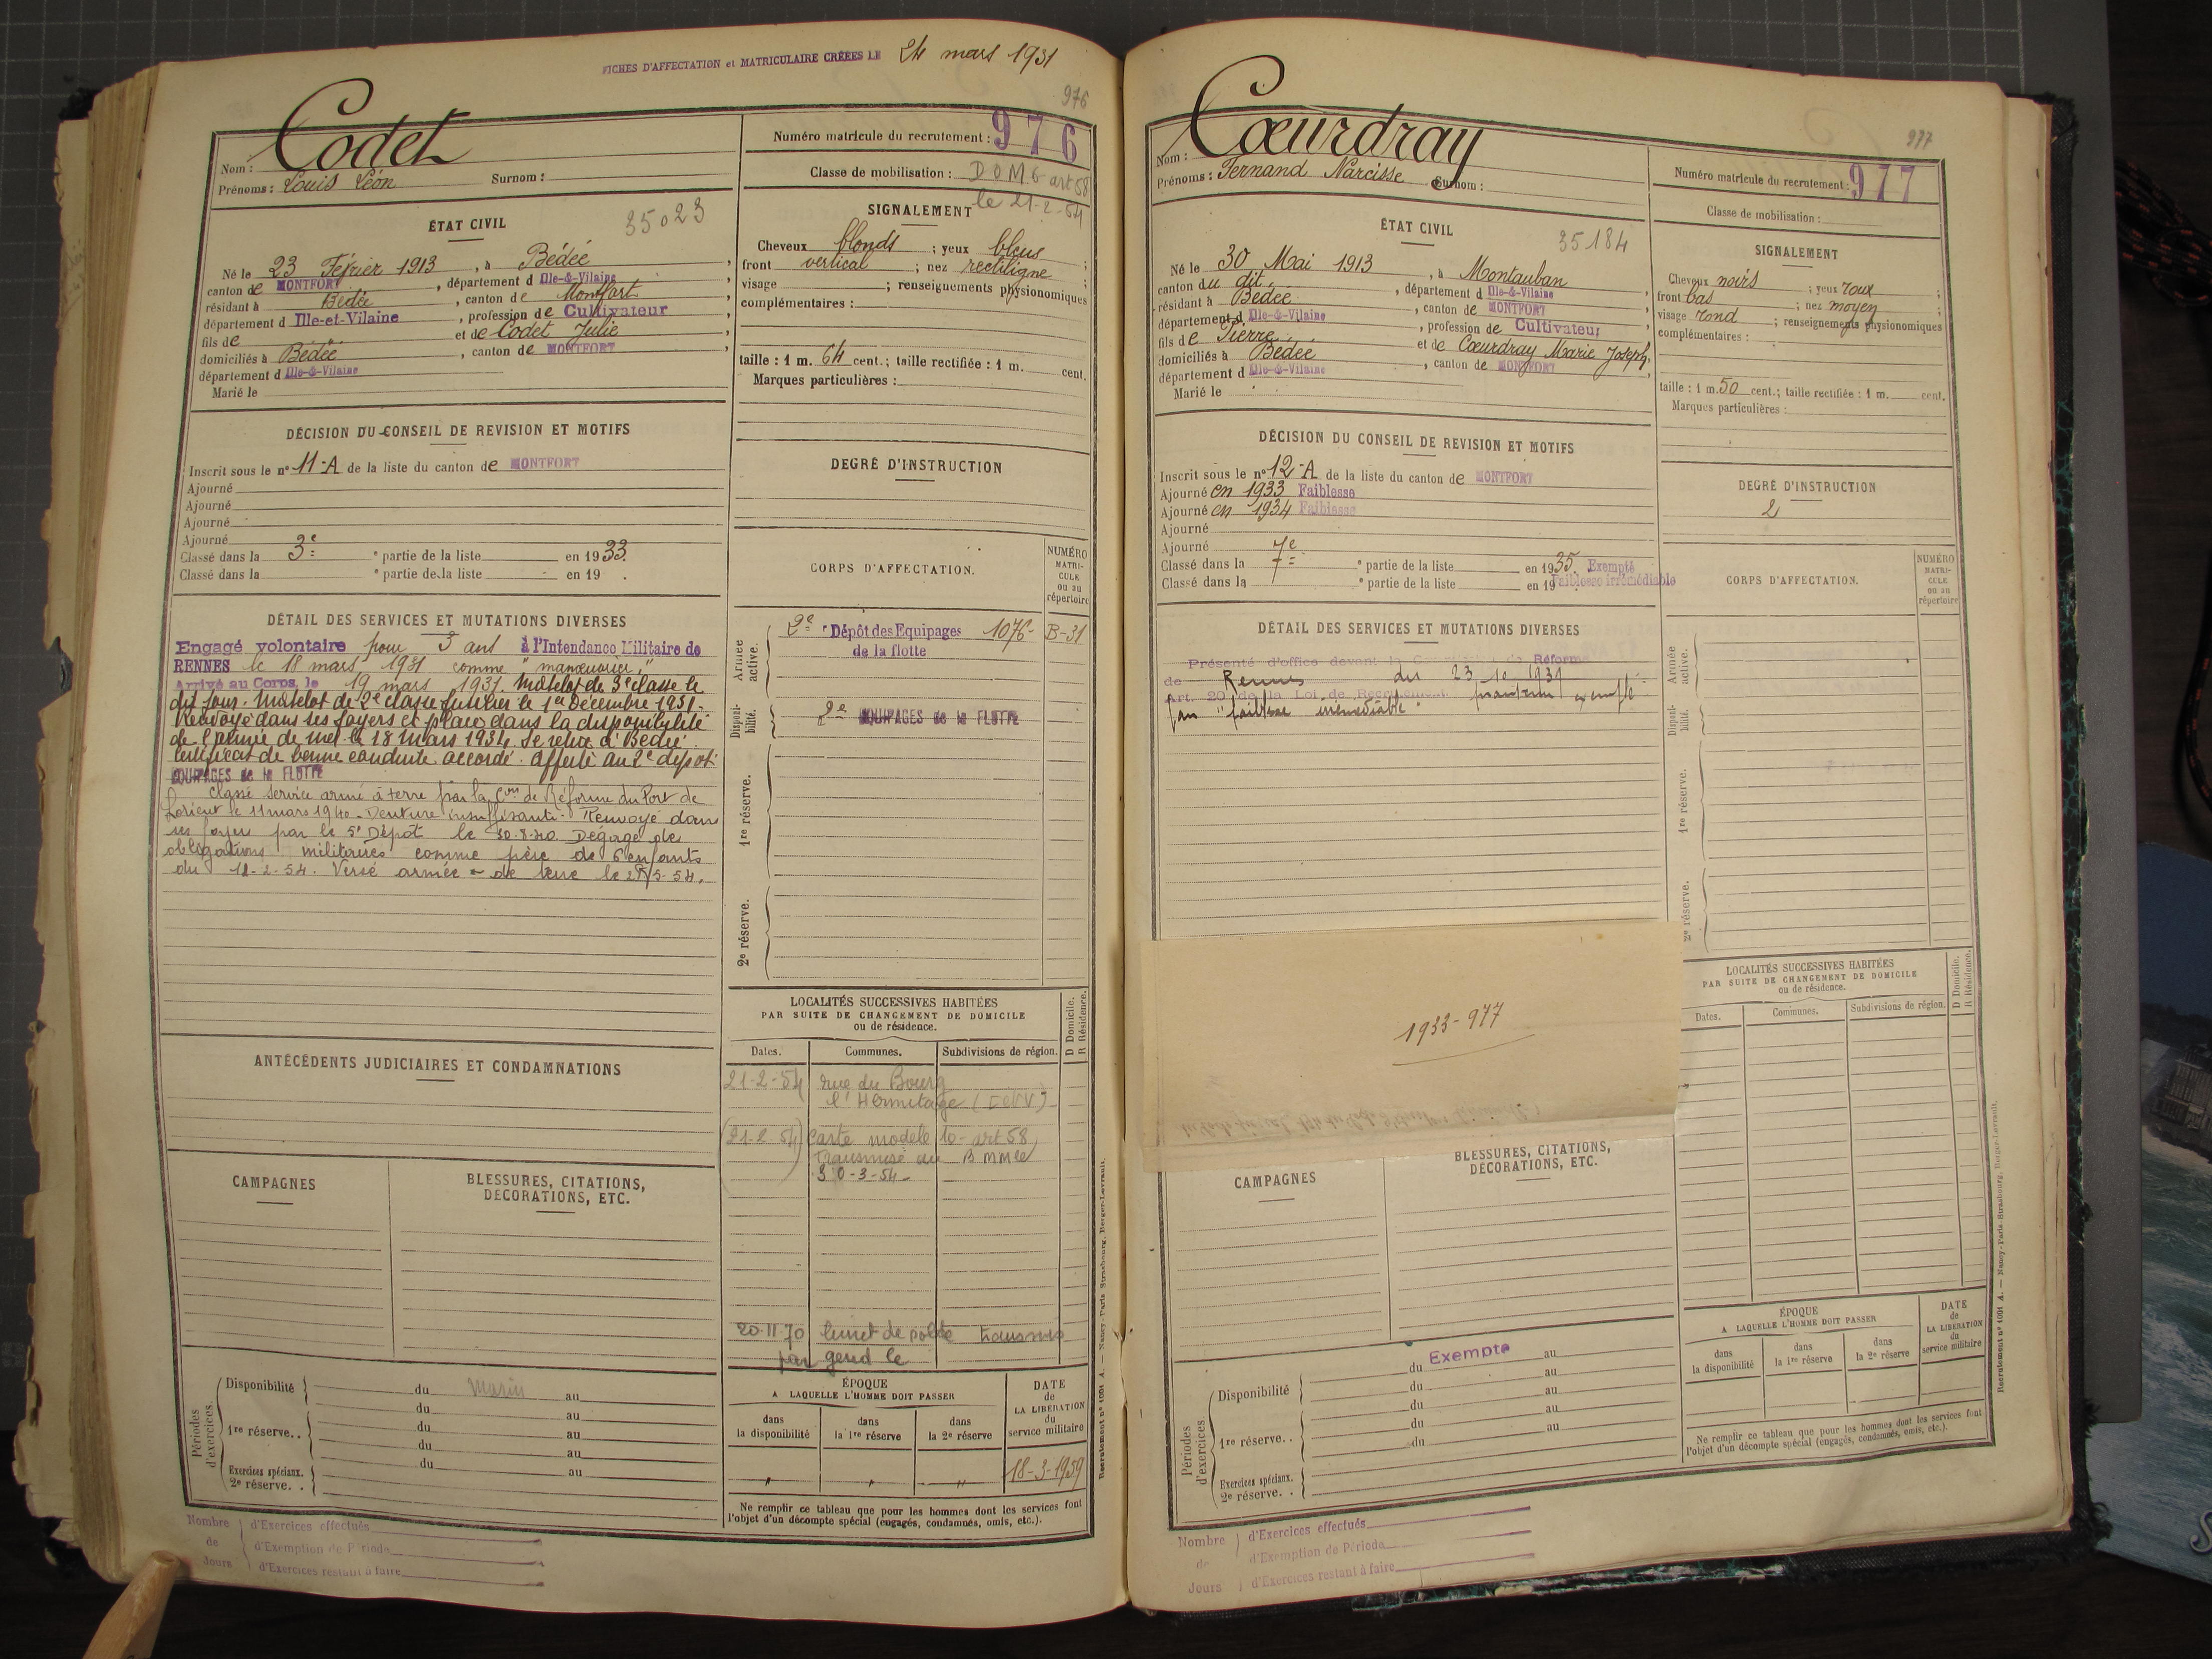 FICHES D'AFFECTATION et MATRICULAIRE CRÉÉES LE 24 mars 1931
976
Nom : Codet
Prénoms : Louis Léon Surnom :
Numéro matricule du recrutement : 976
Classe de mobilisation : DOM 6 art 58
le 21-2-54
ÉTAT CIVIL
35023
Né le 23 Février 1913, à Bédée,
canton de MONTFORT, département d Ille-&-Vilaine
résidant à Bédée, canton de Montfort,
département d Ille-et-Vilaine, profession de Cultivateur,
fils de et de Codet Julie
domiciliés à Bédée, canton de MONTFORT,
département d Ille-&-Vilaine
Marié le
SIGNALEMENT
Cheveux blonds ; yeux bleus ;
front vertical ; nez rectiligne ;
visage ; renseignements physionomiques
complémentaires :
taille : 1 m. 64 cent.; taille rectifiée : 1 m. cent.
Marques particulières :
DÉCISION DU CONSEIL DE REVISION ET MOTIFS
Inscrit sous le n° 11-A de la liste du canton de MONTFORT
Ajourné
Ajourné
Ajourné
Ajourné
Classé dans la 3e partie de la liste en 1933.
Classé dans la e partie de la liste en 19 .
DEGRÉ D'INSTRUCTION
CORPS D'AFFECTATION.
NUMÉRO MATRICULE ou au répertoire
Armée active.
2e Dépôt des Equipages 1076- B-31
de la flotte
Disponibilité.
2e EQUIPAGES de la FLOTTE
1re réserve.
2e réserve.
DÉTAIL DES SERVICES ET MUTATIONS DIVERSES
Engagé volontaire pour 3 ans à l'Intendance Militaire de
RENNES le 18 mars 1931 comme "manœuvrier"
Arrivé au Corps, le 19 mars 1931. Matelot de 3e classe le
dit jour. Matelot de 2e classe fusilier le 1er Décembre 1931.
Renvoyé dans ses foyers et placé dans la disponibilité
de l'armée de mer le 18 mars 1934. Se retire à Bédée.
Certificat de bonne conduite accordé. Affecté au 2e dépôt
EQUIPAGES de la FLOTTE
Classé service armé à terre par la Con de Réforme du Port de
Lorient le 11 mars 1940. Denture insuffisante. Renvoyé dans
ses foyers par le 5e Dépôt le 30-8-40 Dégagé de
obligations militaires comme père de 6 enfants
du 18-2-54. Versé armée de terre le 25-5-54.
ANTÉCÉDENTS JUDICIAIRES ET CONDAMNATIONS
CAMPAGNES
BLESSURES, CITATIONS, DÉCORATIONS, ETC.
LOCALITÉS SUCCESSIVES HABITÉES
PAR SUITE DE CHANGEMENT DE DOMICILE
ou de résidence.
D Domicile. R Résidence.
Dates. Communes. Subdivisions de région.
21-2-54 rue du Bourg
l'Hermitage (I et V)
(21-2-54) Carte modèle 10-art 58,
Transmise au B MMle
30-3-54-
20.11.70 livret de solde transmis
par gend le
Périodes d'exercices.
Disponibilité du Marin au
du au
1re réserve.. du au
du au
Exercices spéciaux. 2e réserve. . du au
ÉPOQUE
A LAQUELLE L'HOMME DOIT PASSER
dans la disponibilité
dans la 1re réserve
dans la 2e réserve
DATE de LA LIBÉRATION du service militaire
" " " 18-3-1959
Ne remplir ce tableau que pour les hommes dont les services font
l'objet d'un décompte spécial (engagés, condamnés, omis, etc.).
Nombre de Jours
d'Exercices effectués
d'Exemption de Période
d'Exercices restant à faire
Recrutement n° 1001 A. — Nancy-Paris-Strasbourg, Berger-Levrault.
977
Nom : Cœurdray
Prénoms : Fernand Narcisse Surnom :
Numéro matricule du recrutement : 977
Classe de mobilisation :
ÉTAT CIVIL
35184
Né le 30 Mai 1913, à Montauban
canton du dit, département d Ille-&-Vilaine,
résidant à Bédée, canton de MONTFORT,
département d Ille-&-Vilaine, profession de Cultivateur
fils de Pierre et de Cœurdray Marie Joseph,
domiciliés à Bédée, canton de MONTFORT,
département d Ille-&-Vilaine
Marié le
SIGNALEMENT
Cheveux noirs ; yeux roux ;
front bas ; nez moyen ;
visage rond ; renseignements physionomiques
complémentaires :
taille : 1 m. 50 cent.; taille rectifiée : 1 m. cent.
Marques particulières :
DÉCISION DU CONSEIL DE REVISION ET MOTIFS
Inscrit sous le n° 12-A de la liste du canton de MONTFORT
Ajourné en 1933 Faiblesse
Ajourné en 1934 Faiblesse
Ajourné
Ajourné
Classé dans la 7e partie de la liste en 1935. Exempté
Classé dans la e partie de la liste en 19 . Faiblesse irrémédiable
DEGRÉ D'INSTRUCTION
2
CORPS D'AFFECTATION.
NUMÉRO MATRICULE ou au répertoire
Armée active.
Disponibilité.
1re réserve.
2e réserve.
DÉTAIL DES SERVICES ET MUTATIONS DIVERSES
Présenté d'office devant la Commission de Réforme
de Rennes du 23 10 1939
Art. 20 de la Loi de Recrutement. maintenu exempté
pour "faiblesse irrémédiable"
1933-977
BLESSURES, CITATIONS, DÉCORATIONS, ETC.
CAMPAGNES
LOCALITÉS SUCCESSIVES HABITÉES
PAR SUITE DE CHANGEMENT DE DOMICILE
ou de résidence.
D Domicile. R Résidence.
Dates. Communes. Subdivisions de région.
Périodes d'exercices.
Disponibilité du Exempté au
du au
1re réserve. . du au
du au
Exercices spéciaux. 2e réserve. . du au
ÉPOQUE
A LAQUELLE L'HOMME DOIT PASSER
dans la disponibilité
dans la 1re réserve
dans la 2e réserve
DATE de LA LIBÉRATION du service militaire
Ne remplir ce tableau que pour les hommes dont les services font
l'objet d'un décompte spécial (engagés, condamnés, omis, etc.).
Nombre de Jours
d'Exercices effectués
d'Exemption de Période
d'Exercices restant à faire
Recrutement n° 1001 A. — Nancy-Paris-Strasbourg, Berger-Levrault.